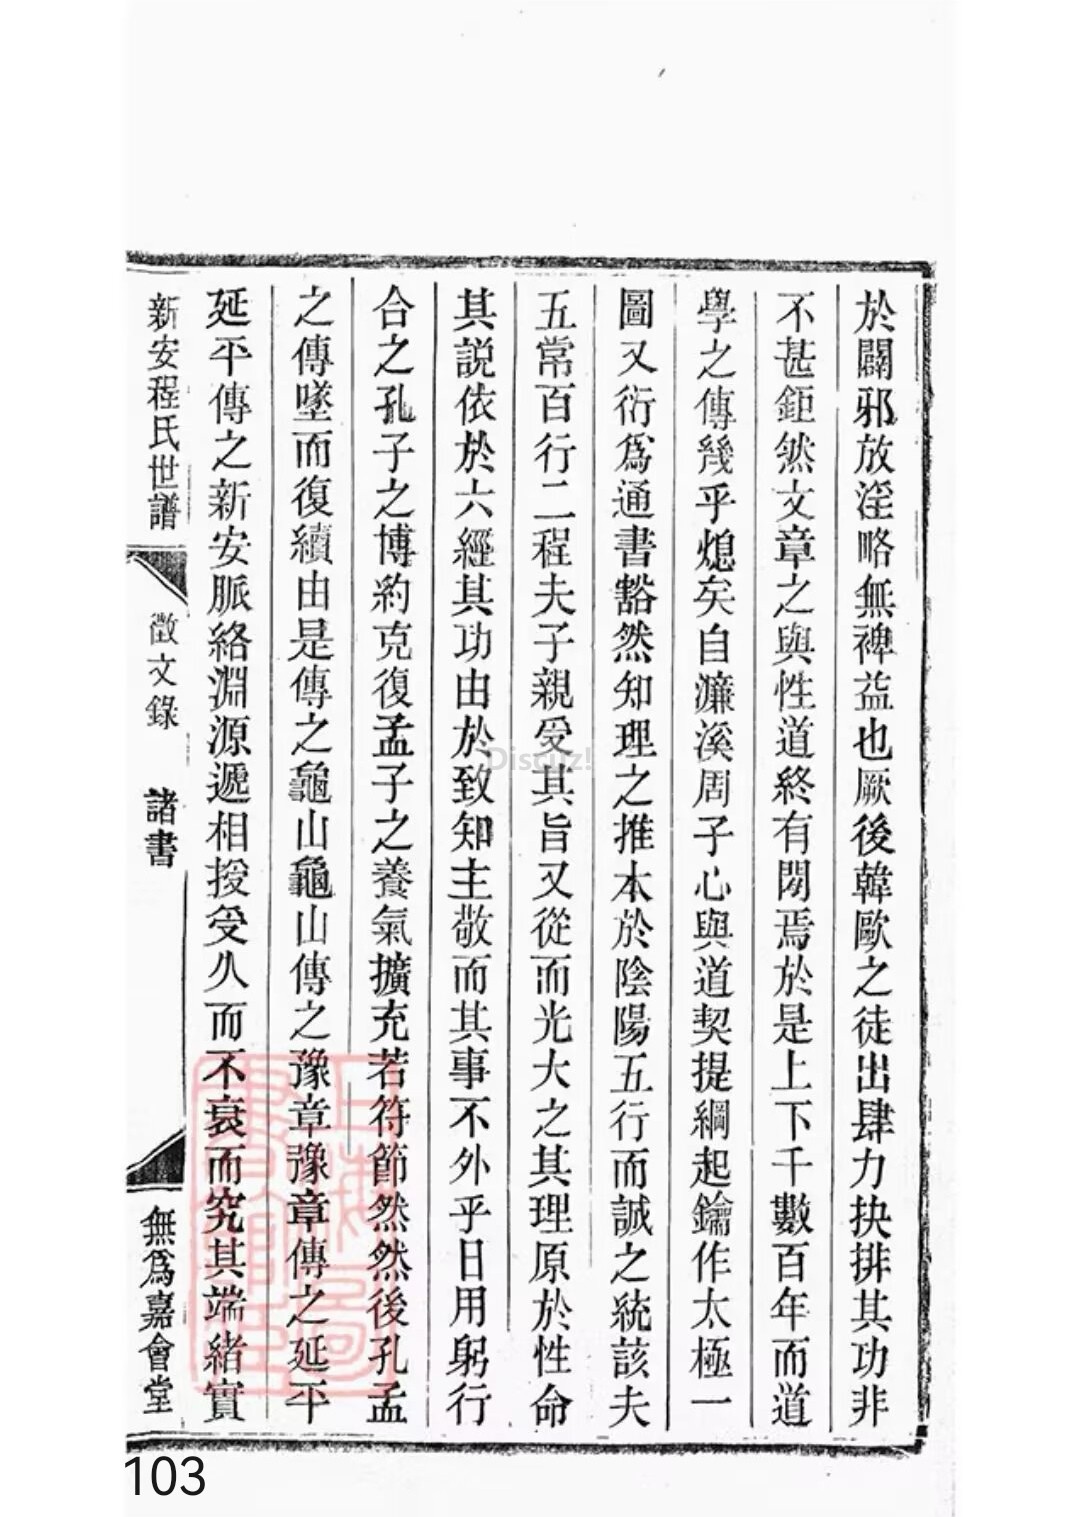 於闢邪放淫略無裨益也厥後韓歐之徒出肆力抉排其功非
不甚鉅然文章之與性道終有閡焉於是上下千數百年而道
學之傳幾乎熄矣自濂溪周子心與道契提綱起鑰作太極一
圖又衍爲通書豁然知理之推本於陰陽五行而誠之統該夫
五常百行二程夫子親受其旨又從而光大之其理原於性命
其説依於六經其功由於致知主敬而其事不外乎日用躬行
合之孔子之博約克復孟子之養氣擴充若符節然然後孔孟
之傳墜而復續由是傳之龜山龜山傳之豫章豫章傳之延平
延平傳之新安脈絡淵源遞相授受久而不衰而究其端緒實
新安程氏世譜 徵文錄 諸書 無爲嘉會堂
Discuz!
103